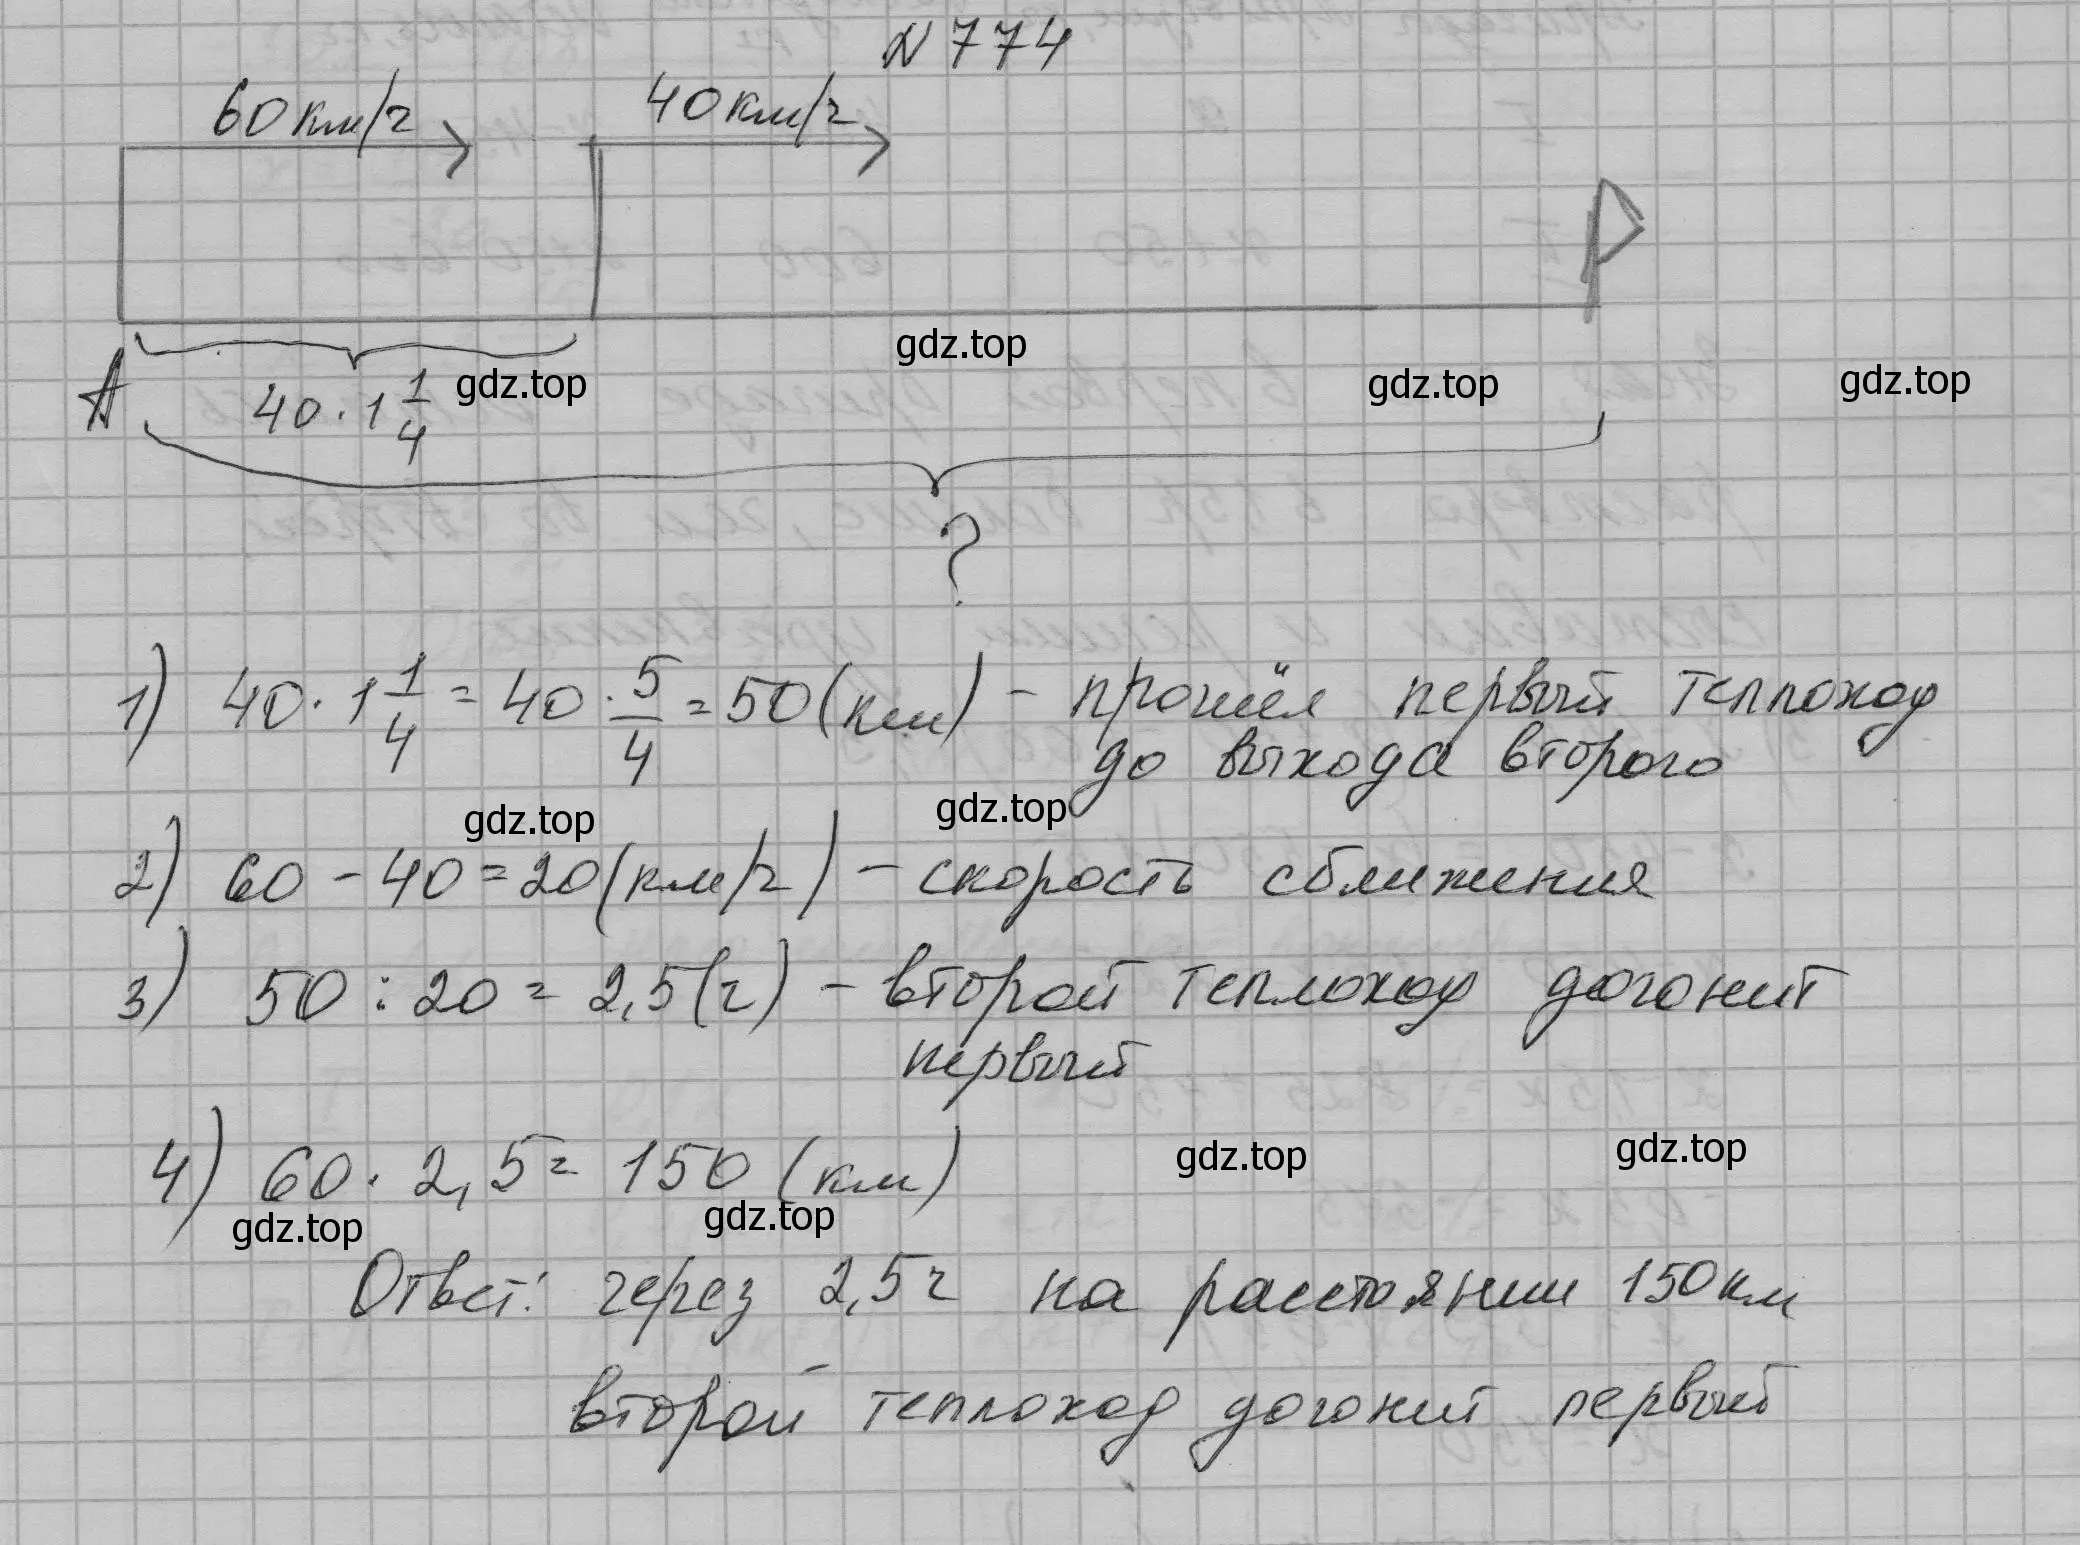 N 774
60 км/ч 40 км/ч
А 40 · 1 1/4
gdz.top
gdz.top
gdz.top
gdz.top
?
1) 40 · 1 1/4 = 40 · 5/4 = 50 (км) – прошёл первый теплоход
до выхода второго
gdz.top
gdz.top
2) 60 – 40 = 20 (км/ч) – скорость сближения
3) 50 : 20 = 2,5 (ч) – второй теплоход догонит
первый
4) 60 · 2,5 = 150 (км)
gdz.top
gdz.top
gdz.top
gdz.top
Ответ: через 2,5 ч на расстоянии 150 км
второй теплоход догонит первый